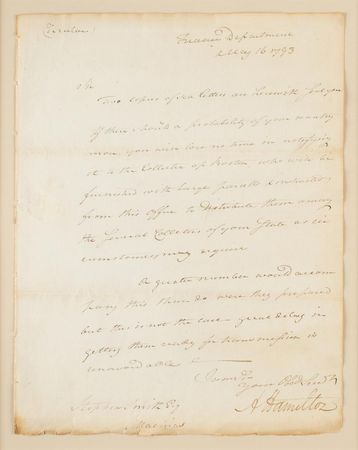 Circular
Treasury Department
May 16 1793
Sir
Two copies of Sea Letters are herewith sent you
If there should be a probability of your wanting
more you will lose no time in notifying
it to the Collector of Boston who will be
furnished with large parcels & instructions
from this Office to distribute them among
the several Collectors of your State as cir
cumstances may require
A greater number would accom
pany this then do were they prepared
but this is not the case—great delay in
getting them ready for transmission is
unavoidable
I am Sir
Your Obed Servt
A Hamilton
Stephen Smith Esq
Machias